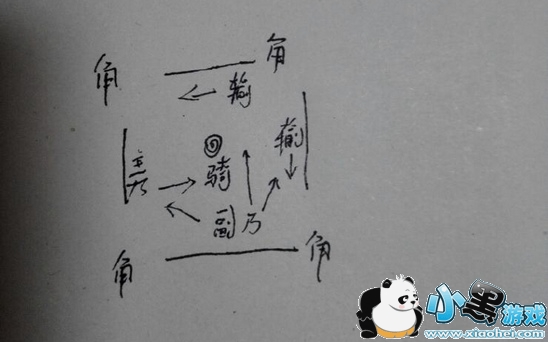 角
角
输
输
骑
副 乃
角
角
小黑游戏
www.xiaohei.com